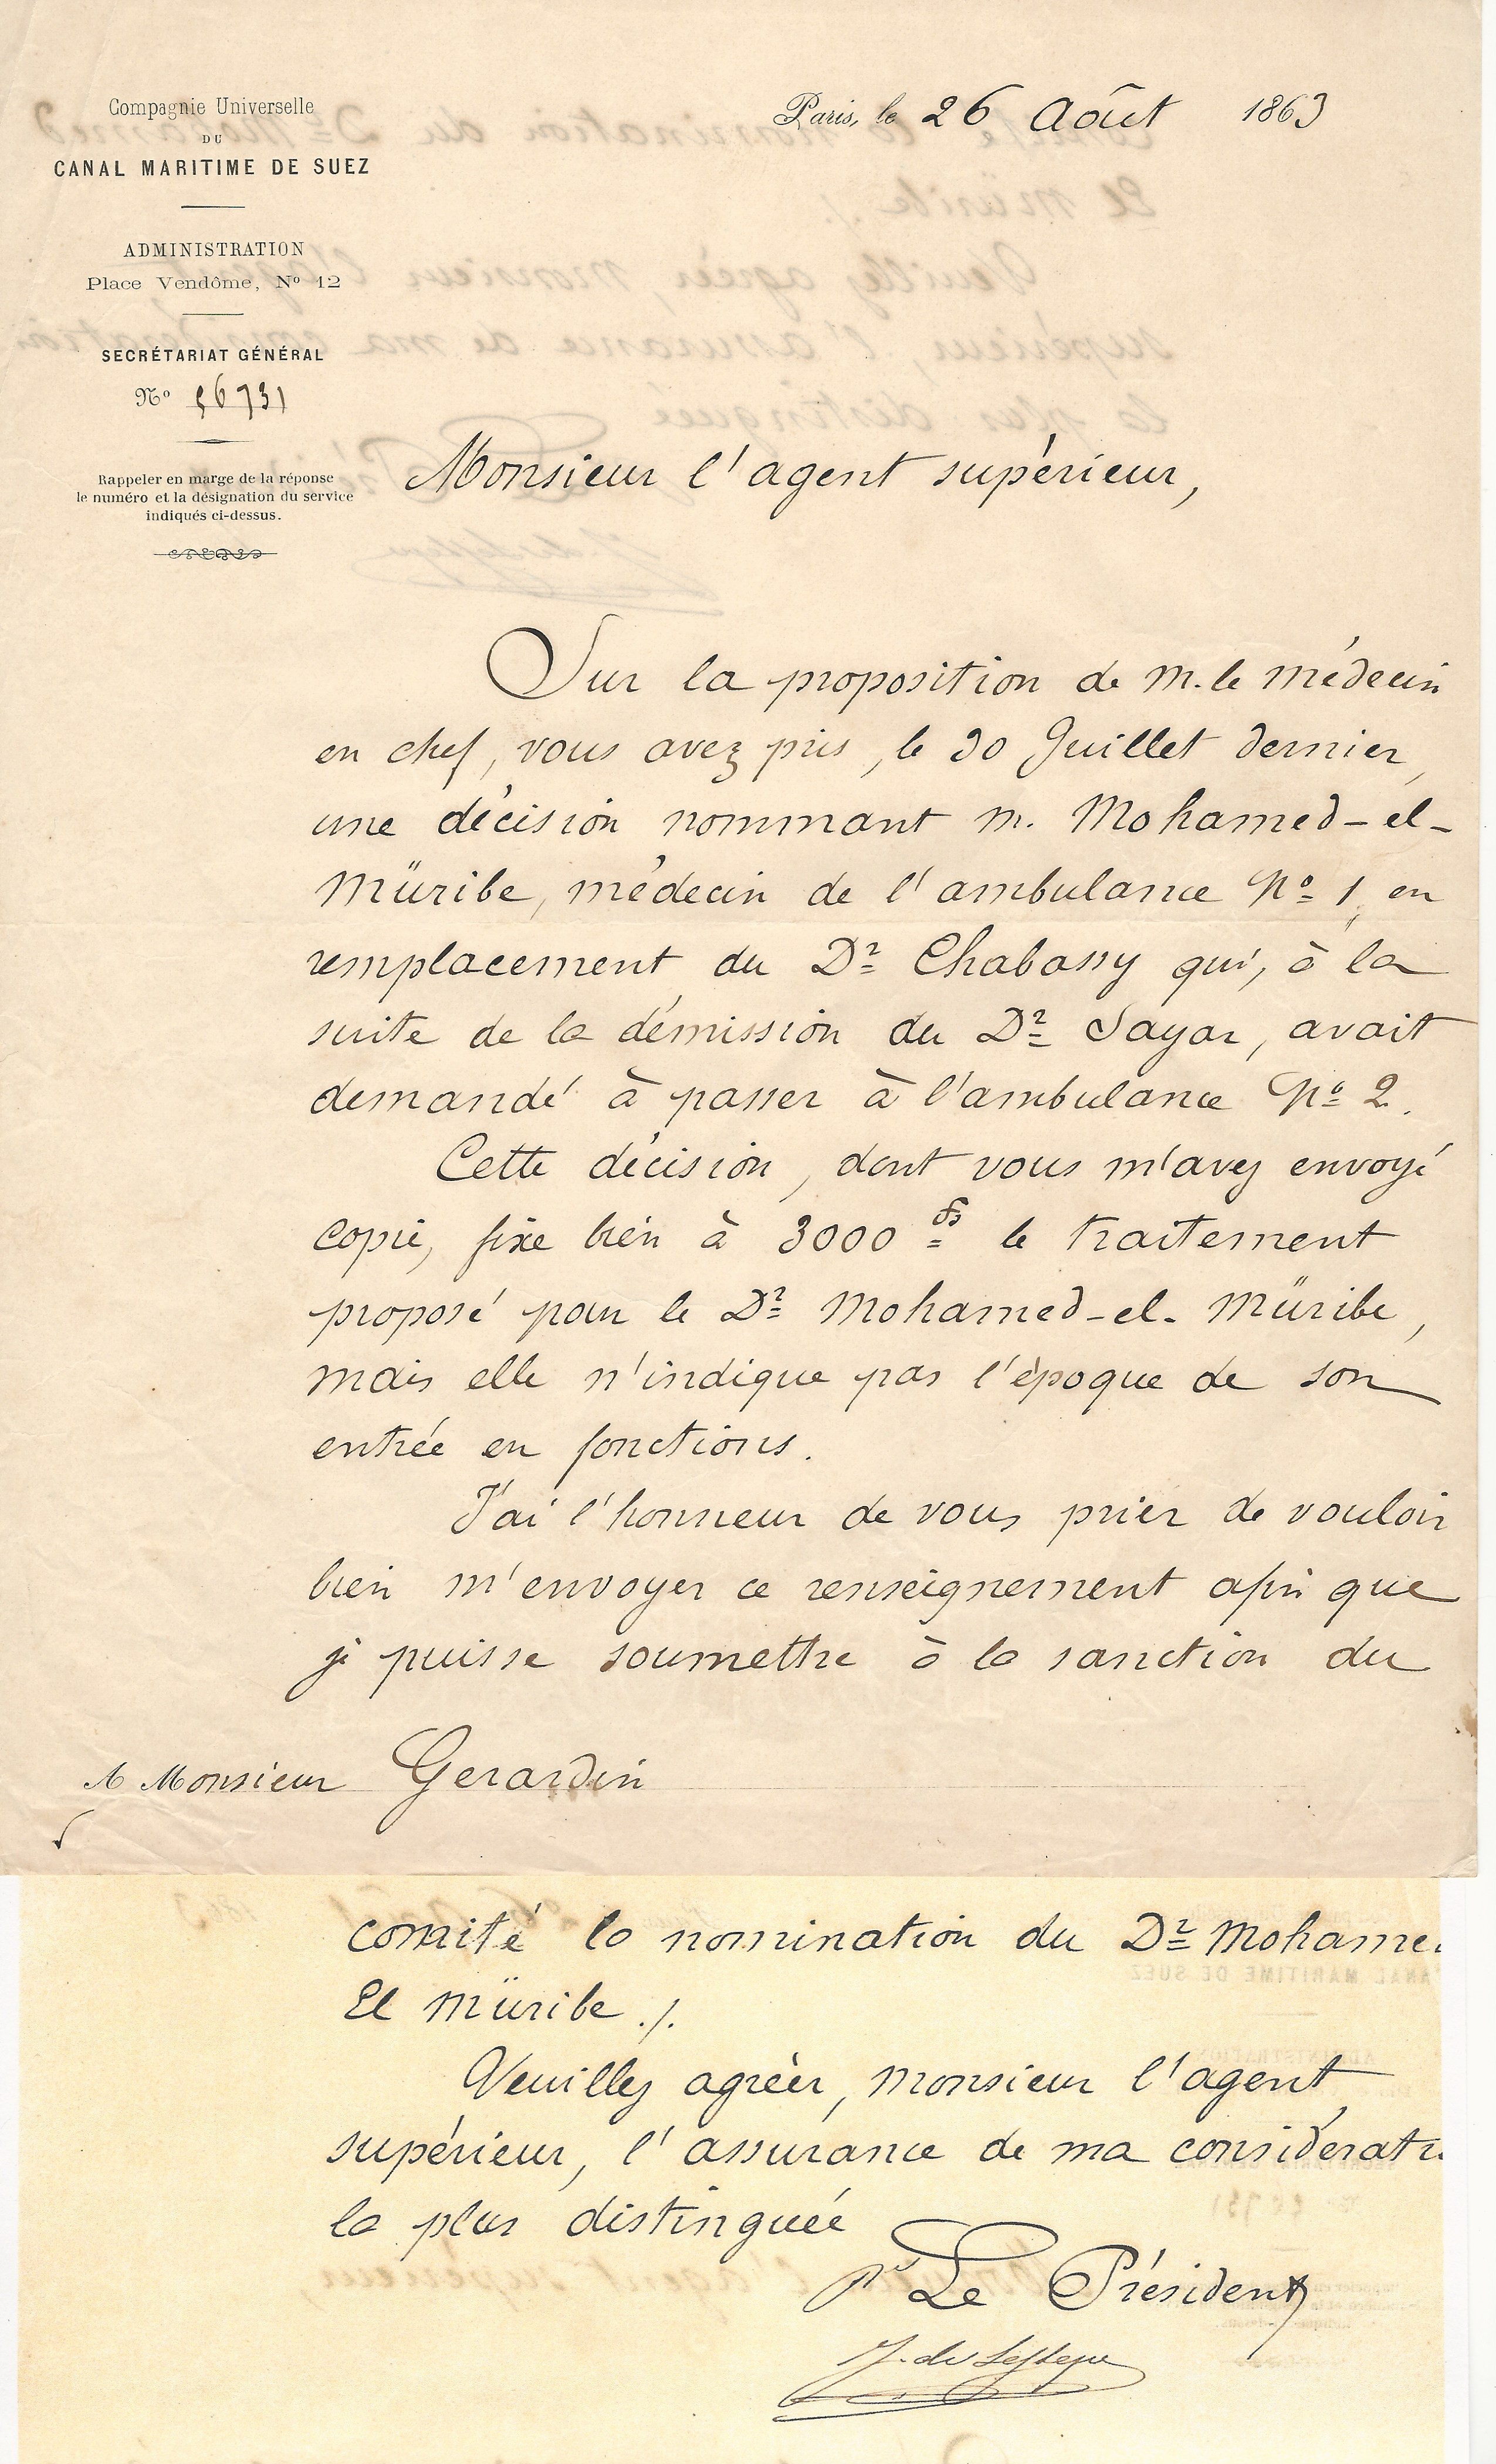 Compagnie Universelle
DU
CANAL MARITIME DE SUEZ
ADMINISTRATION
Place Vendôme, Nº 12
SECRÉTARIAT GÉNÉRAL
Nº 56731
Rappeler en marge de la réponse
le numéro et la désignation du service
indiqués ci-dessus.
Paris, le 26 Août 1863
Monsieur l'agent supérieur,
Sur la proposition de M. le Médecin
en chef, vous avez pris, le 30 Juillet dernier,
une décision nommant M. Mohamed-el-
Müribe, médecin de l'ambulance Nº 1, en
remplacement du Dr Chabassy qui, à la
suite de la démission du Dr Sayar, avait
demandé à passer à l'ambulance Nº 2.
Cette décision, dont vous m'avez envoyé
copie, fixe bien à 3000 fs le traitement
proposé pour le Dr Mohamed-el-Müribe,
mais elle n'indique pas l'époque de son
entrée en fonctions.
J'ai l'honneur de vous prier de vouloir
bien m'envoyer ce renseignement afin que
je puisse soumettre à la sanction du
A Monsieur Gerardin
comité la nomination du Dr Mohamed
El Müribe ./.
Veuillez agréer, Monsieur l'agent
supérieur, l'assurance de ma considérati
la plus distinguée
pr Le Président
J. de Lesseps